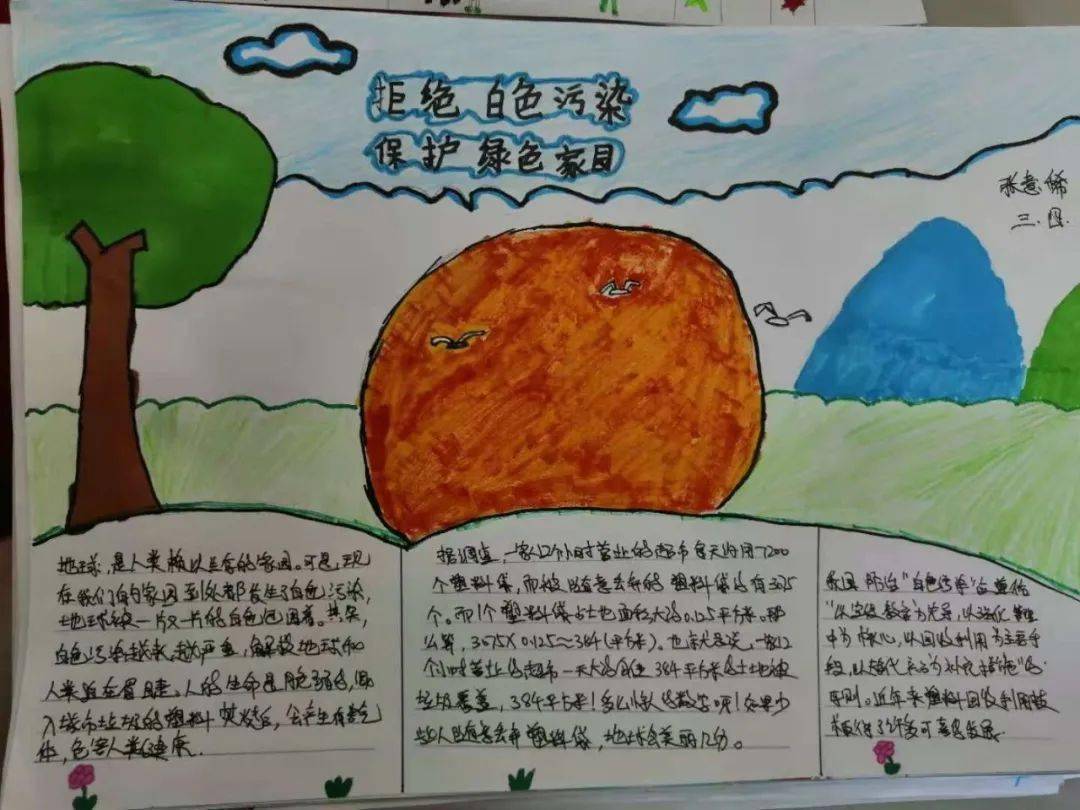 拒绝白色污染
保护绿色家园
张意
三.
地球,是人类赖以生存的家园。可是,现
在我们的家园到处都发生了白色污染,
地球被一片又一片的白色包围着。其实,
白色污染越来越严重,解救地球和
人类迫在眉睫。人的生命是脆弱的,
入城市垃圾的塑料焚烧后,会产生有害气
体,危害人类健康.
据调查,一家12个小时营业的超市每天約用7200
个塑料袋,而被随意丢弃的塑料袋约有3075
个。而1个塑料袋占土地面积大约0.125平方米.那
么算,3075X0.125≈384(平方米)。也就是说,一家12
个小时营业的超市一天大约有384平方米的土地被
垃圾覆盖,384平方米!多么惊人的数字呀!如果少
些人随意丢弃塑料袋,地球会美丽几分。
我国防治"白色污染"应遵循
"以宣传教育为先导,以强化管理
为核心,以回收利用为主要手
段,以替代产品为补充措施"的
原则。近年来塑料回收利用被